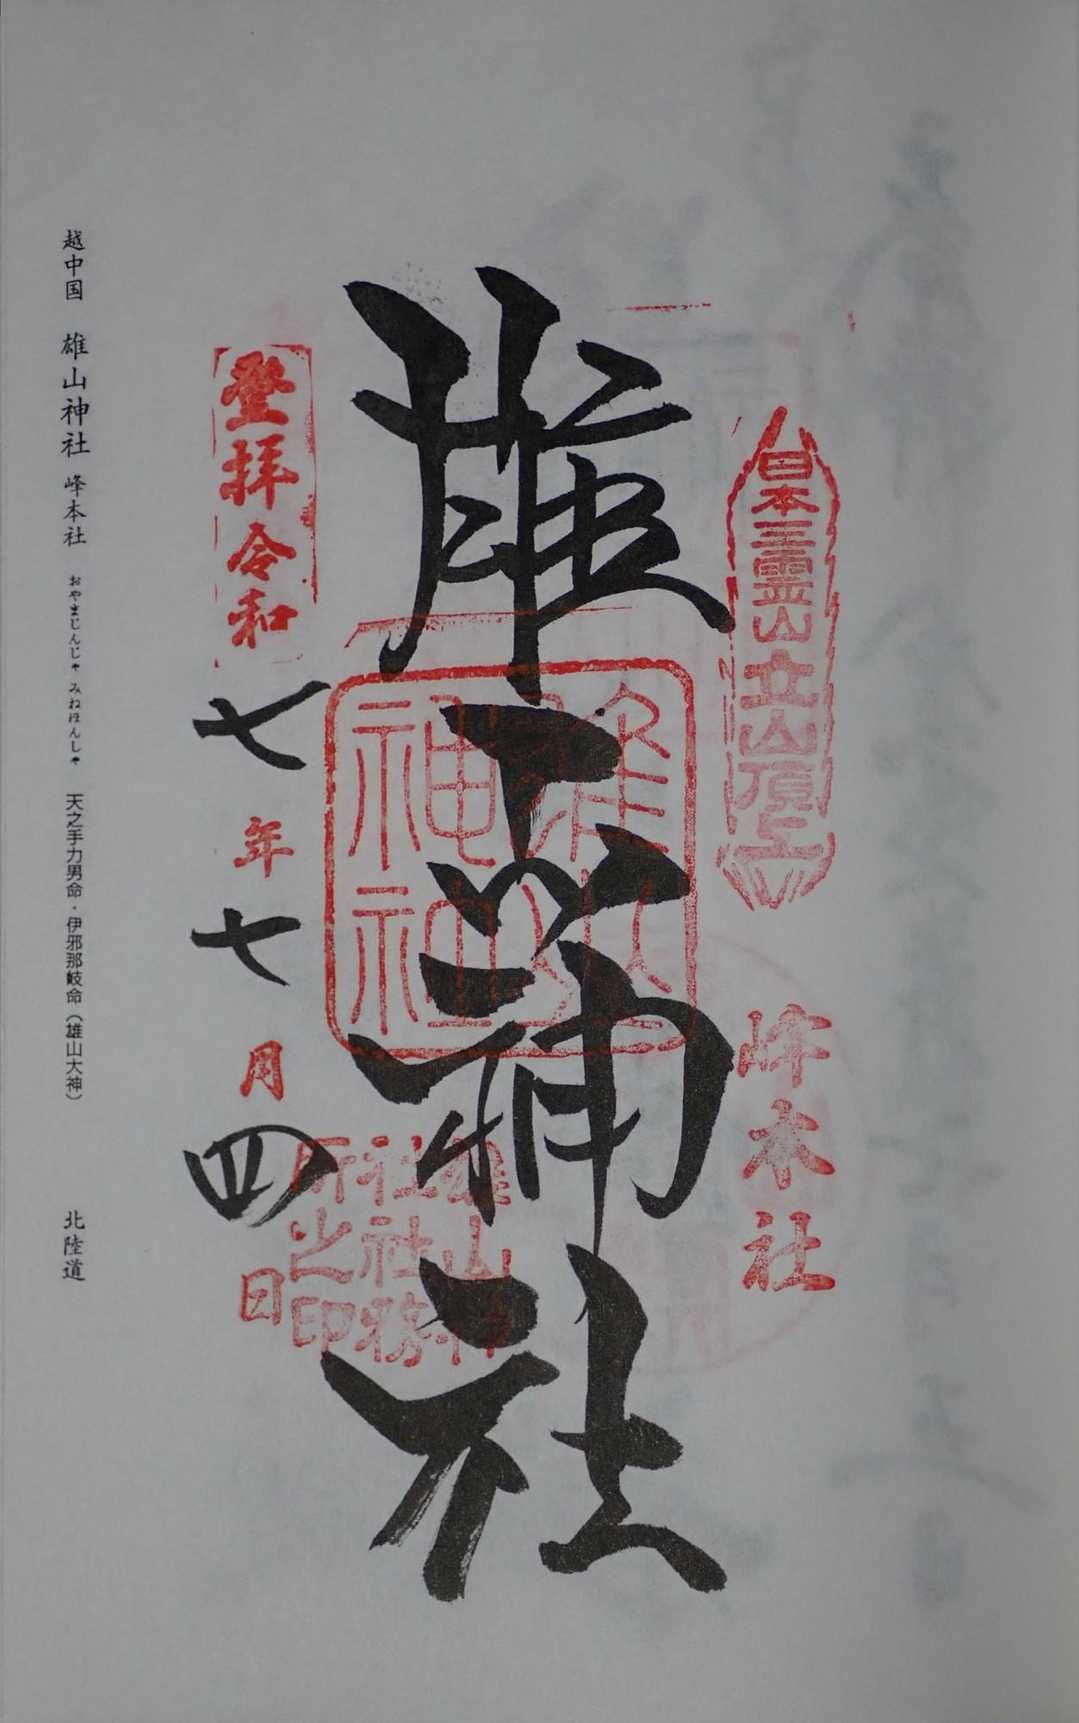 日本三霊山立山頂上
峰本社
雄山神社
雄山
神社
雄山神
社社務
所之印
登拝令和七年七月四日
越中国 雄山神社 峰本社 おやまじんじゃ みねほんしゃ 天之手力男命・伊邪那岐命（雄山大神） 北陸道